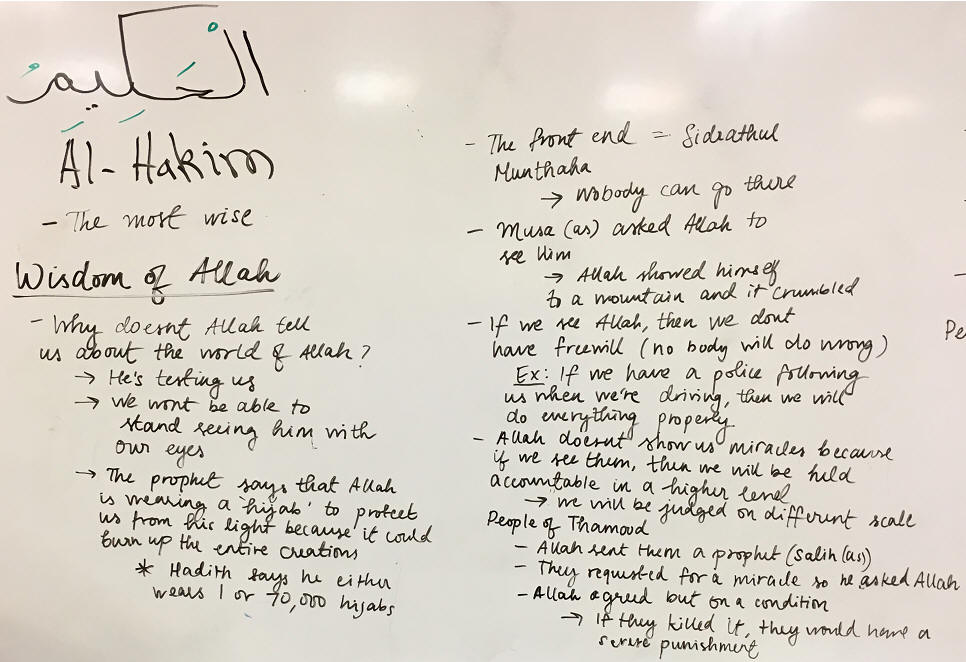 الْحَكِيمُ
Al-Hakim
- The most wise
Wisdom of Allah
- Why doesnt Allah tell
us about the world of Allah?
→ He's testing us
→ we wont be able to
stand seeing him with
our eyes
→ The prophet says that Allah
is wearing a 'hijab' to protect
us from his light because it could
burn up the entire creations
* Hadith says he either
wears 1 or 70,000 hijabs
- The front end = Sidrathul
Munthaha
→ Nobody can go there
- Musa (as) asked Allah to
see Him
→ Allah showed himself
to a mountain and it crumbled
- If we see Allah, then we dont
have freewill (no body will do wrong)
Ex: If we have a police following
us when we're driving, then we will
do everything properly
- Allah doesnt show us miracles because
if we see them, then we will be held
accountable in a higher level
→ we will be judged on different scale
People of Thamoud
- Allah sent them a prophet (Salih (as))
- They requested for a miracle so he asked Allah
- Allah agreed but on a condition
→ If they killed it, they would have a
punishment
Pe